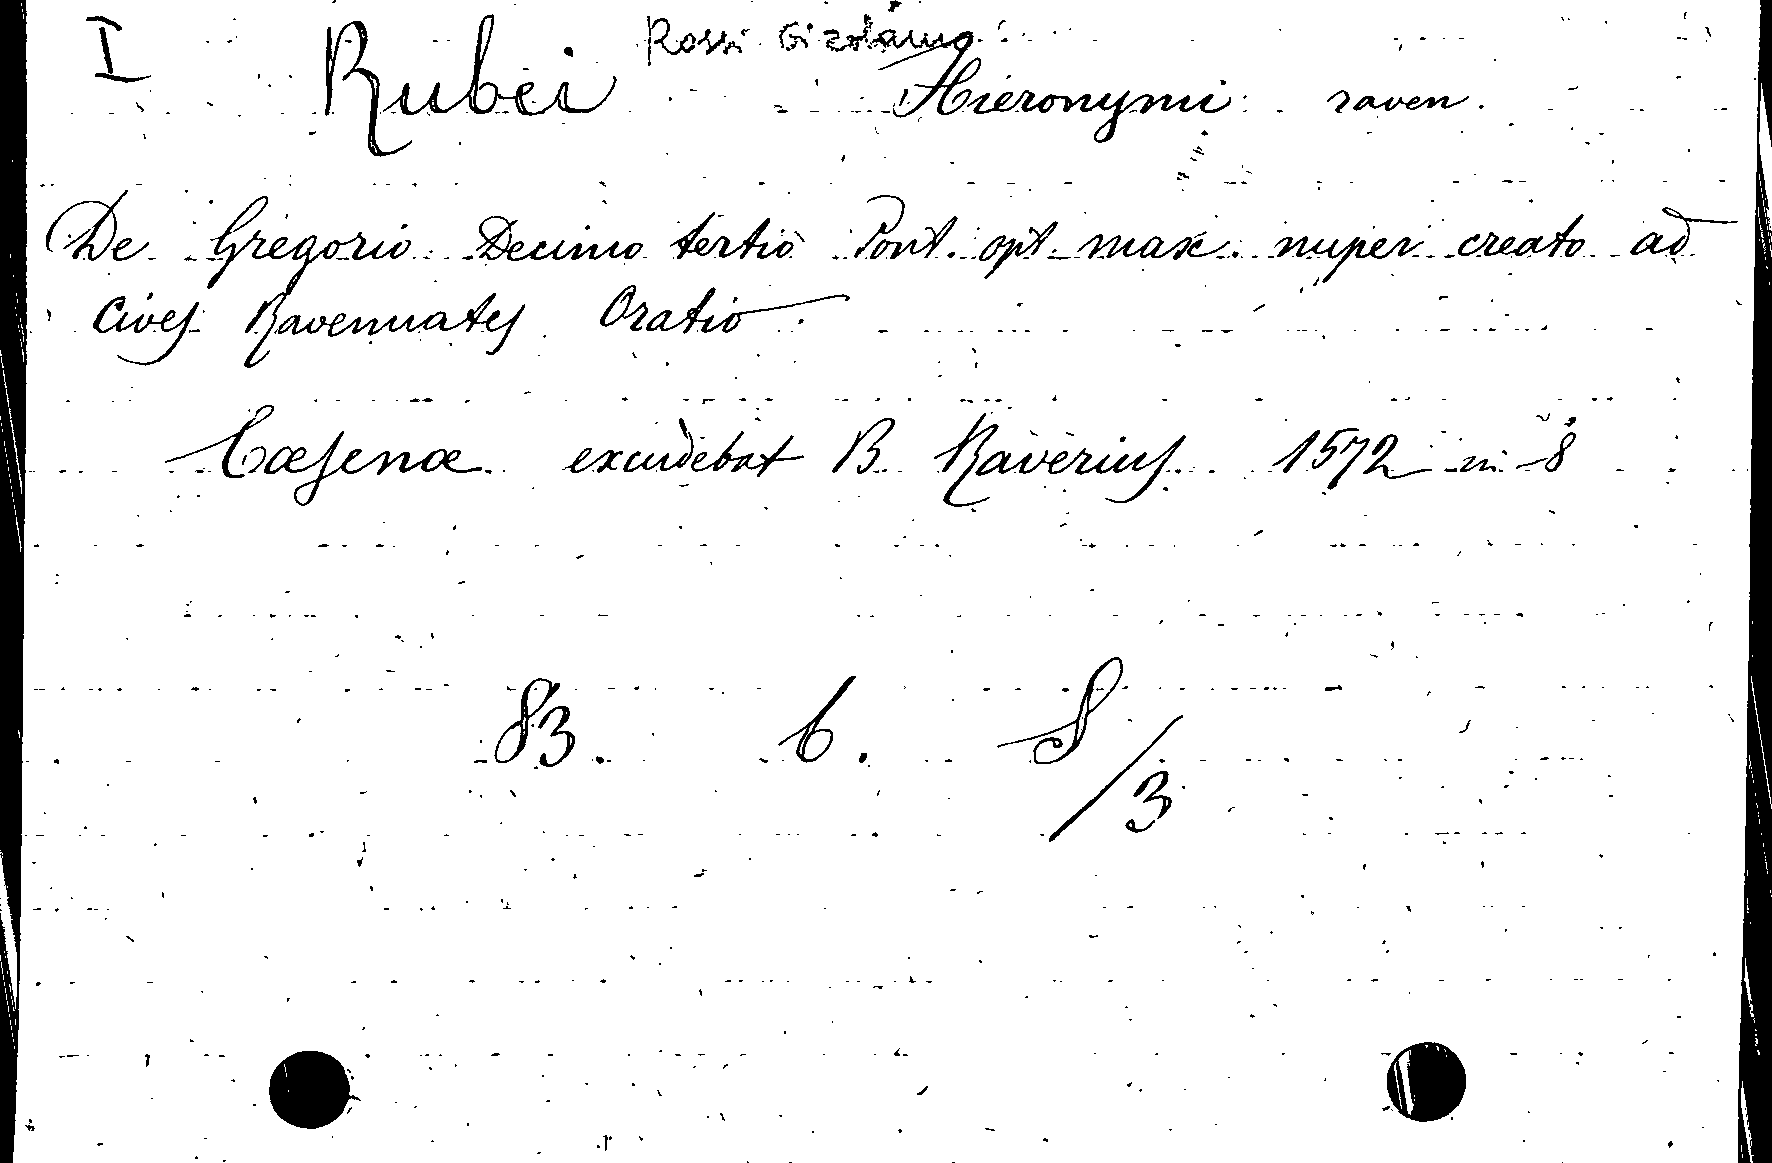 I Rubei Rossi Girolamo Hieronymi raven.
De Gregorio Decimo tertio Pont. opt. max. nuper creato ad
Cives Ravennates Oratio
Cæsenæ excudebat B. Raverius 1572 in 8°
83. 6. S/3